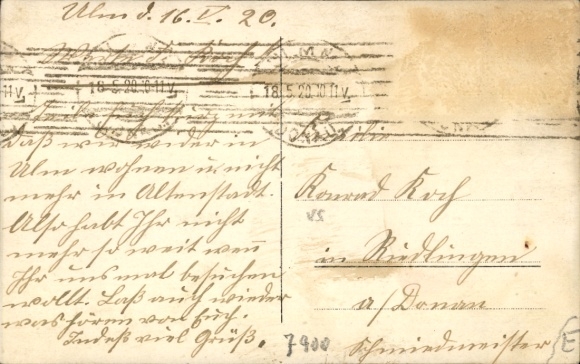 Ulm d. 16. V. 20.
Koch!
Teile Euch kurz mit
daß wir wieder in
Ulm wohnen u. nicht
mehr in Altenstadt.
Also habt Ihr nicht
mehr so weit wenn
Ihr uns mal besuchen
wollt. Laß auch wieder
was hören von Euch.
Indeß viel Grüß.
18.5.20.10-11V.
18.5.20.10-11V.
Familie
Konrad Koch
in Riedlingen
a/Donau
Schmiedmeister
7900
E